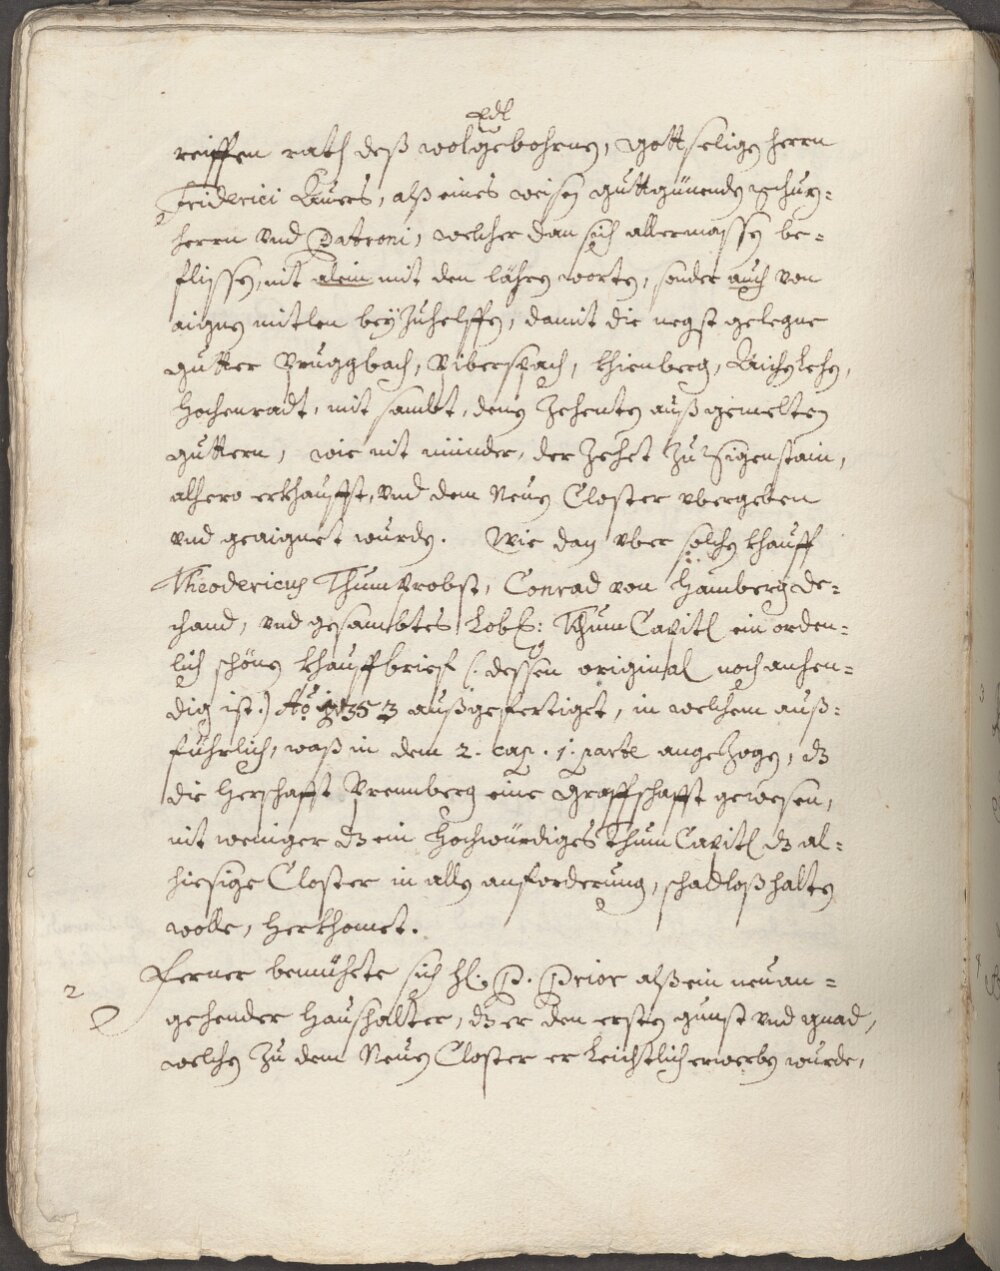 Edl
reiffen rath deß wolgebohrnen, gottseligen herrn
Friderici Auers, alß eines weisen guttgünenden schuz-
herrn vnd Patroni, welcher dan sich allermassen be-
flissen, nit alein mit den lähren worten, sonder auch von
aignen mitlen bey zuhelffen, damit die negst gelegne
gütter Pruggbach, Biberspach, Khienberg, Aichelehen,
Hochenradt, mit sambt, denen Zehenten auß gemelten
guttern, wie nit münder, der Zehet zu Sigenstain,
alhero erkhaufft, vnd dem Neuen Closter vbergeben
vnd geaignet wurden. Wie dan vber solchen khauff
Theodericus Thum Probst, Conrad von Haimberg De-
chand, vnd gesambtes Lobl: Thum Capitl ein orden-
lich schönen khauffbrief (: dessen original noch anhen-
dig ist.) Aõ 1353 außgefertiget, in welchem auß-
führlich, waß in dem 2. cap. 1. parte angezogen, dz
die Herschafft Prennberg eine Graffschafft gewesen,
nit weniger dz ein Hochwürdiges Thum Capitl dz al-
hiesige Closter in allen anforderung, schadloß halten
wolle, herkhomet.
2
Ferner bemühete sich hl. P. Prior alß ein neuan-
gehender Haushalter, dz er den ersten gunst vnd gnad,
welchen zu dem Neuen Closter er leichtlich erwerben wurde,